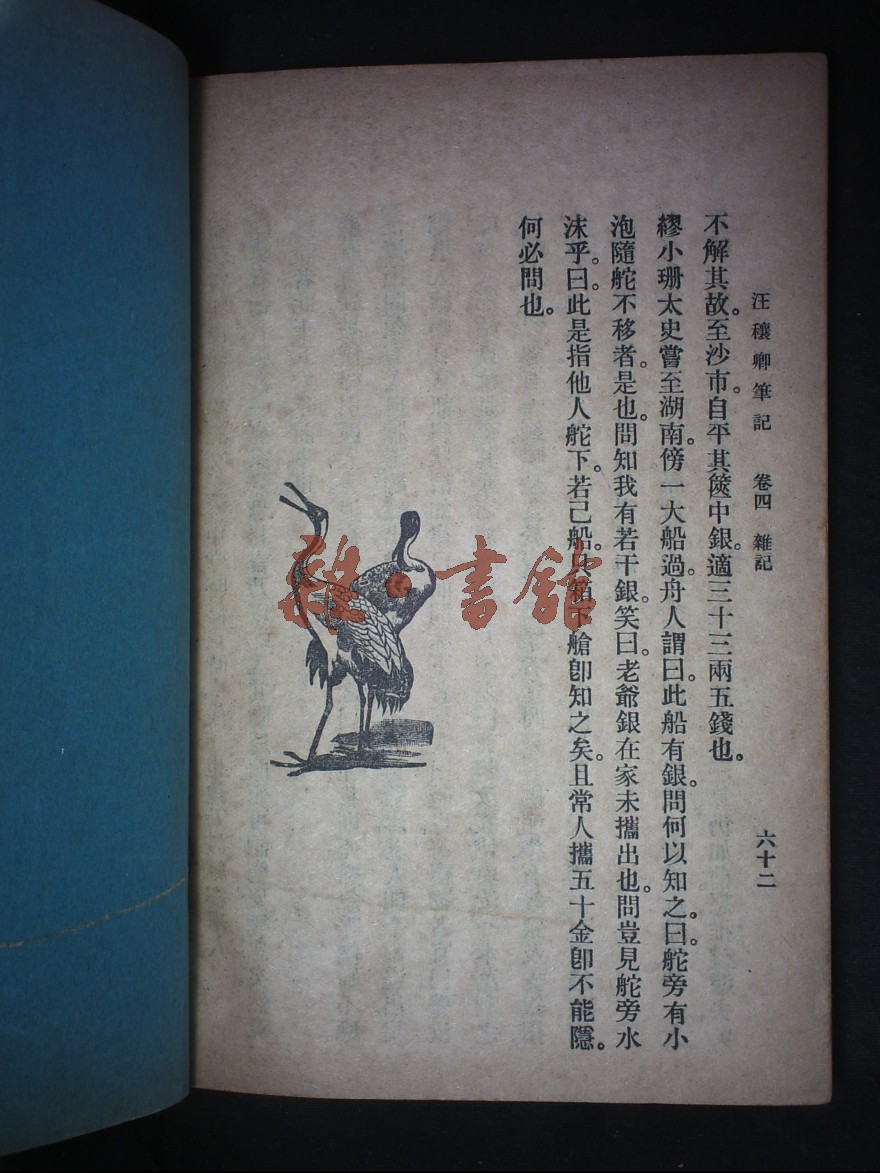 汪穰卿筆記　卷四　雜記　六十二
不解其故。至沙市。自平其篋中銀。適三十三兩五錢也。
繆小珊太史嘗至湖南。傍一大船過。舟人謂曰。此船有銀。問何以知之。曰。舵旁有小
泡隨舵不移者。是也。問知我有若干銀。笑曰。老爺銀在家未攜出也。問豈見舵旁水
沫乎。曰。此是指他人舵下。若己船。只箱下艙卽知之矣。且常人攜五十金卽不能隱。
何必問也。
雜·書館